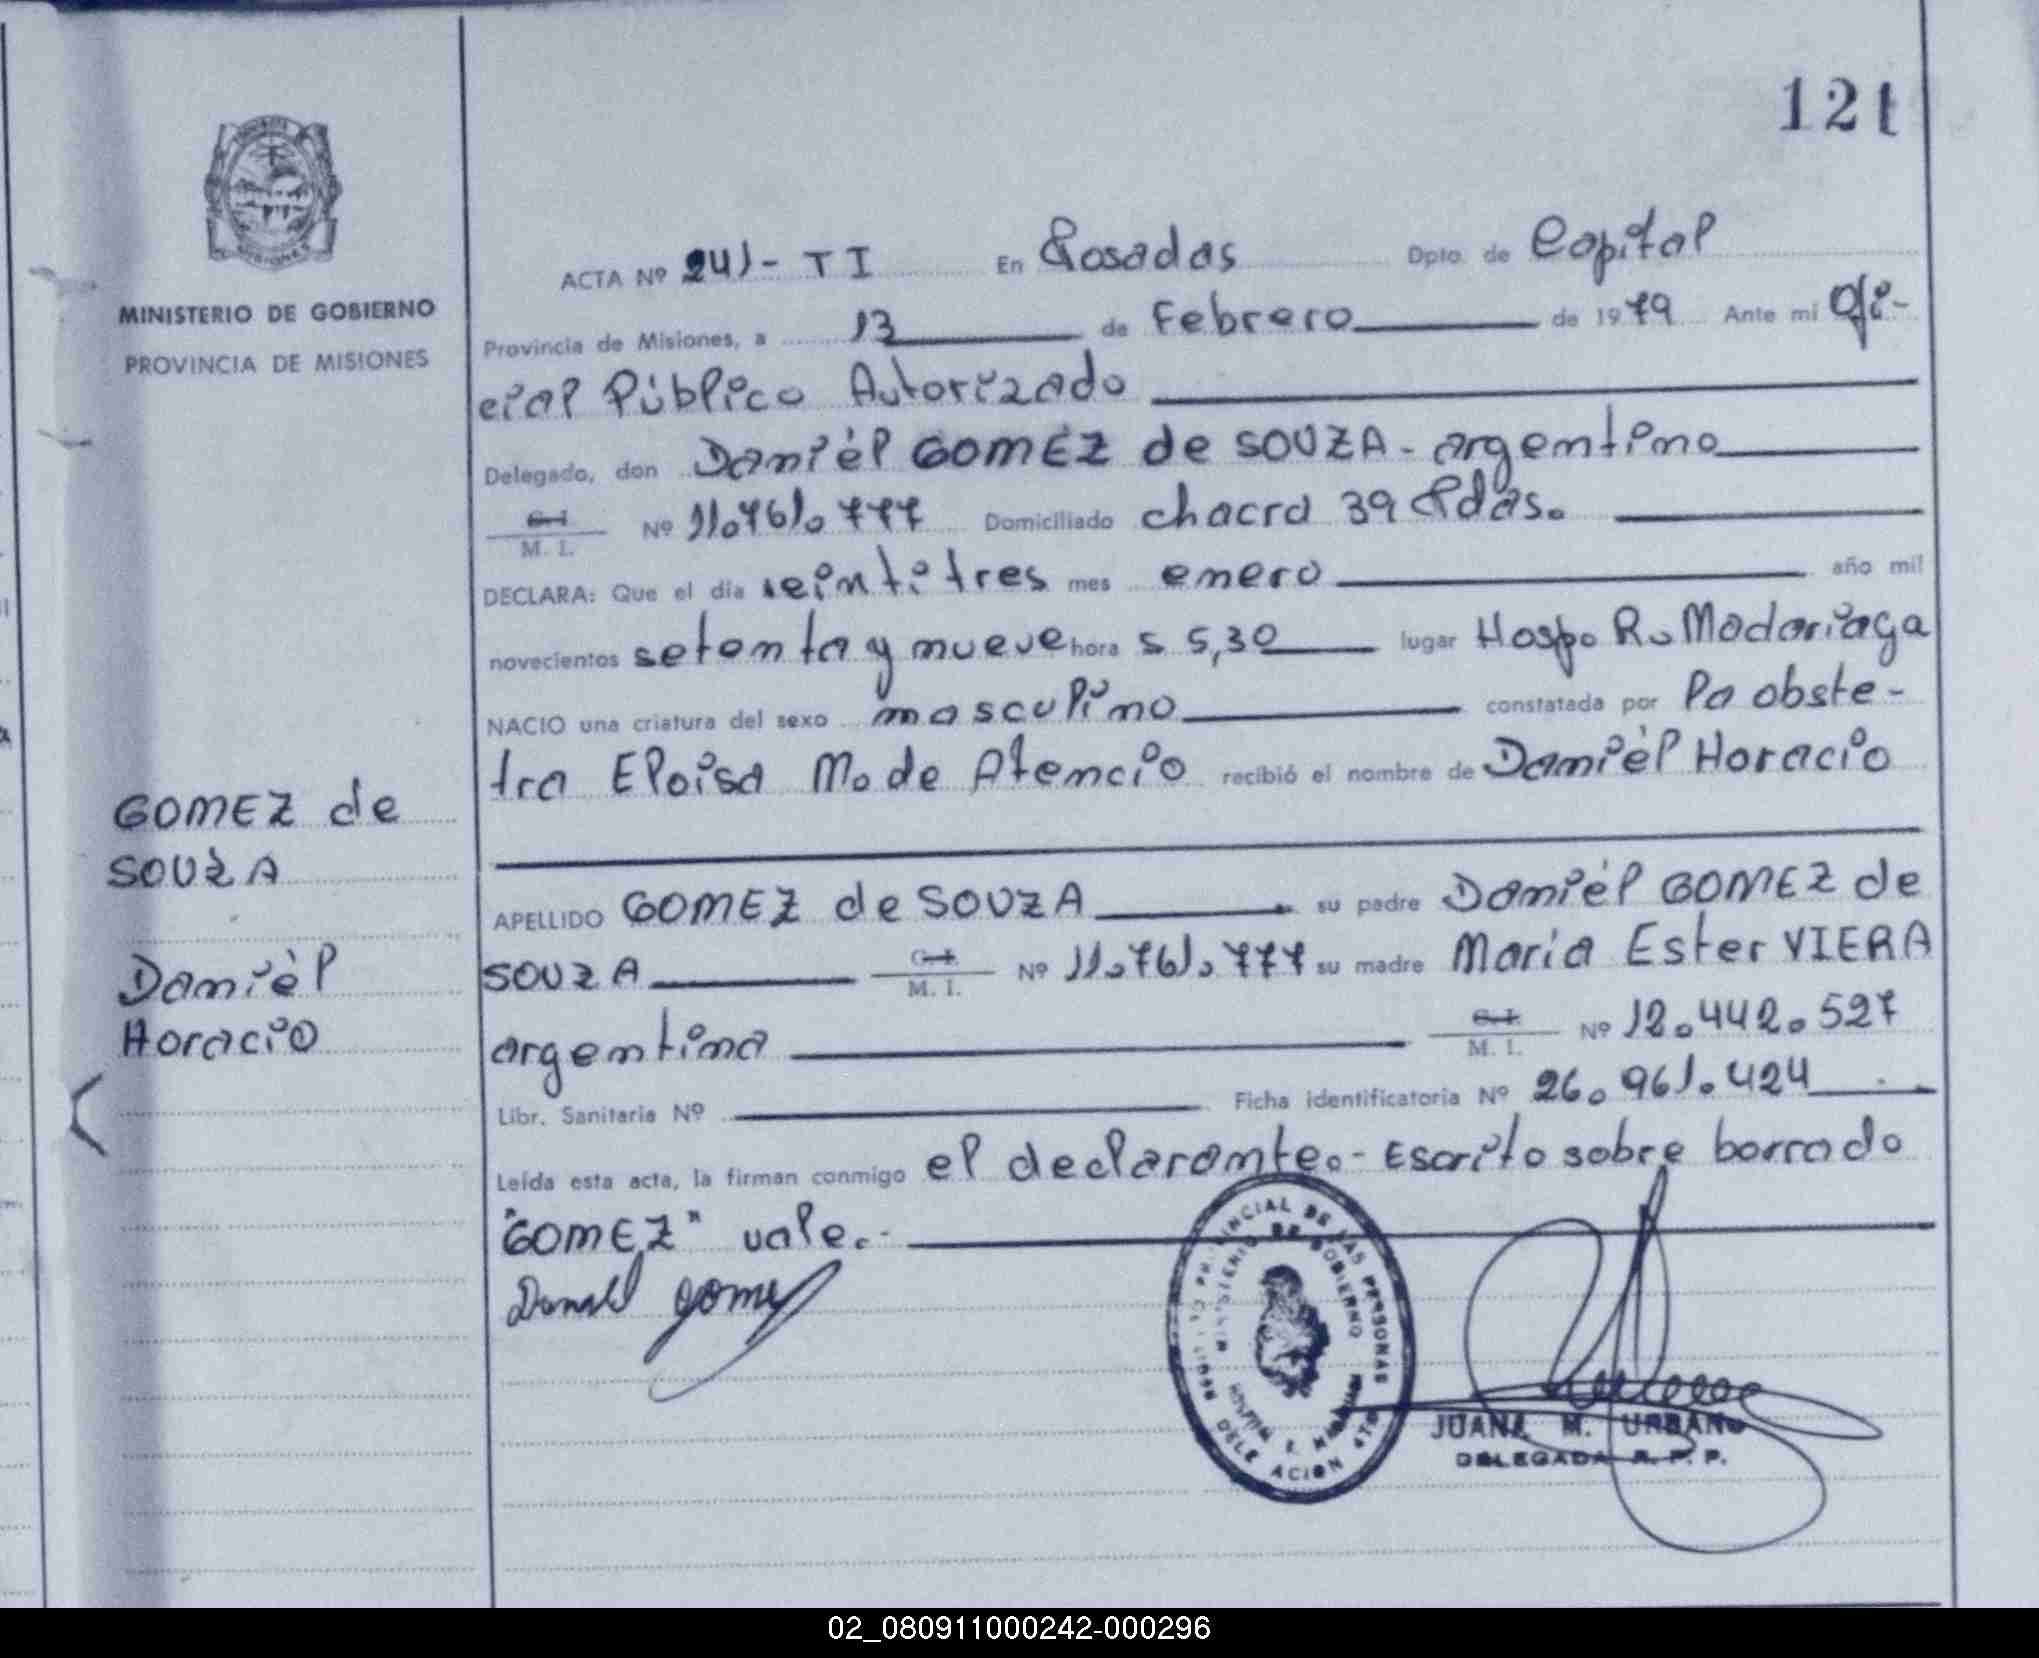 121
MINISTERIO DE GOBIERNO
PROVINCIA DE MISIONES
ACTA Nº 241- TI En Posadas Dpto. de Capital
Provincia de Misiones, a 13 de Febrero de 1979 Ante mi Ofi-
cial Público Autorizado
Delegado, don Danièl GOMEZ de SOUZA - argentino
C.I. M. I. Nº 11.761.777 Domiciliado chacra 39 Pdas.
DECLARA: Que el día veintitres mes enero año mil
novecientos setenta y nueve hora s 5,30 lugar Hosp. R. Madariaga
NACIO una criatura del sexo masculino constatada por la obste-
tra Eloisa M. de Atencio recibió el nombre de Danièl Horacio
GOMEZ de
SOUZA
Danièl
Horacio
APELLIDO GOMEZ de SOUZA su padre Danièl GOMEZ de
SOUZA C.I. M. I. Nº 11.761.777 su madre Maria Ester VIERA
argentina C.I. M. I. Nº 12.442.527
Libr. Sanitaria Nº Ficha identificatoria Nº 26.961.424
Leída esta acta, la firman conmigo el declarante.- Escrito sobre borrado
"GOMEZ" vale.-
Daniel Gomez
PROVINCIAL DE LAS PERSONAS
MINISTERIO DE GOBIERNO
JUANA M. URBANO
DELEGADA R. P. P.
02_080911000242-000296